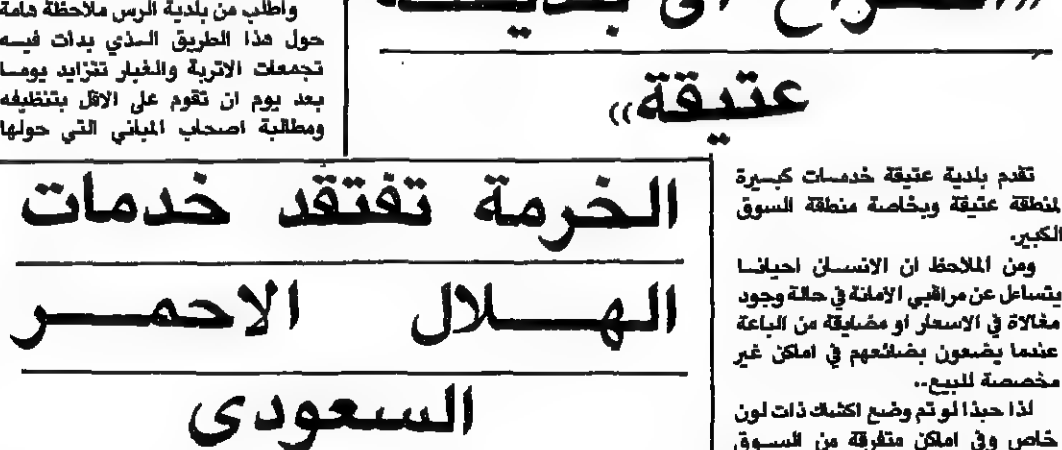 عتيقة»
تقدم بلدية عتيقة خدمات كبيرة
لمنطقة عتيقة وبخاصة منطقة السوق
الكبير.
ومن الملاحظ ان الانسان احيانا
يتساءل عن مراقبي الامانة في حالة وجود
مغالاة في الاسعار او مضايقة من الباعة
عندما يضعون بضائعهم في اماكن غير
مخصصة للبيع..
لذا حبذا لو تم وضع اكشاك ذات لون
خاص وفي اماكن متفرقة من السوق
واطلب من بلدية الرس ملاحظة هامة
حول هذا الطريق الذي بدات فيه
تجمعات الاتربة والغبار تتزايد يوما
بعد يوم ان تقوم على الاقل بتنظيفه
ومطالبة اصحاب المباني التي حولها
الخرمة تفتقد خدمات
الهلال الاحمر
السعودى